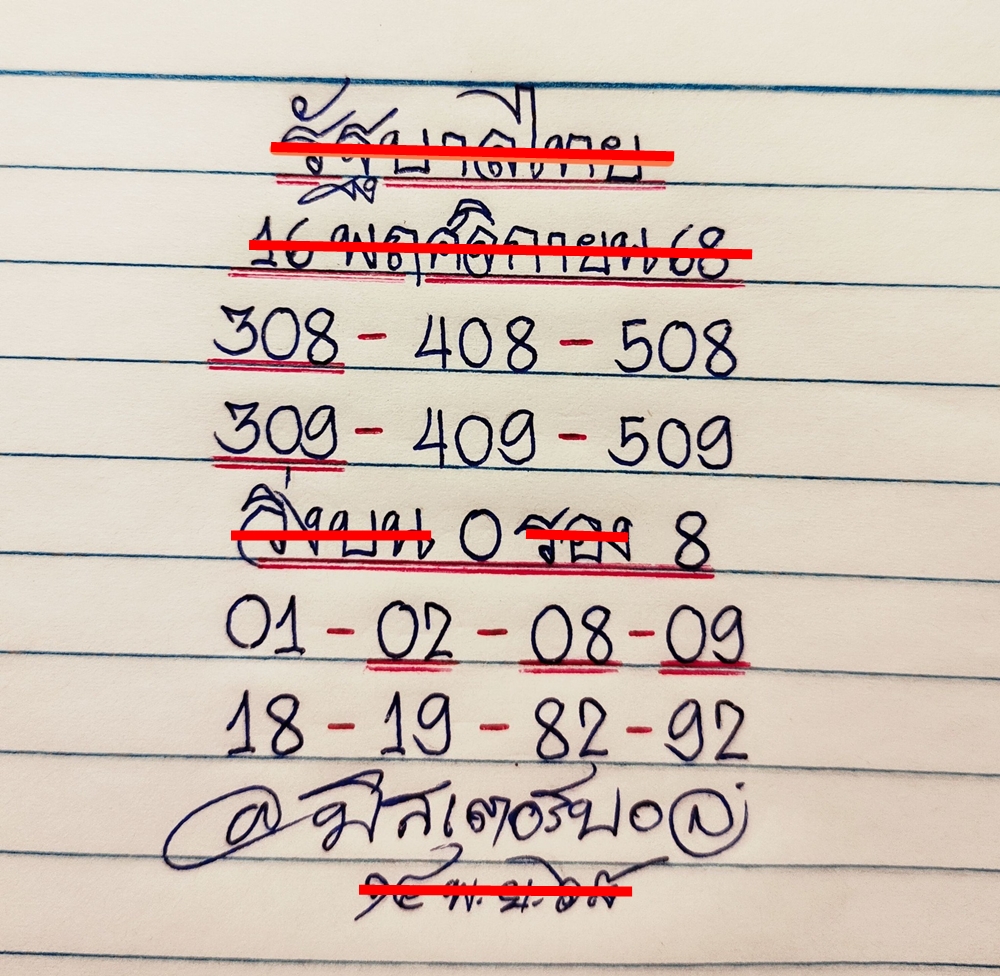 รัฐบาลไทย
16 พฤศจิกายน 68
308 - 408 - 508
309 - 409 - 509
วิ่งบน 0 รอง 8
01 - 02 - 08 - 09
18 - 19 - 82 - 92
@มิสเตอร์บอล